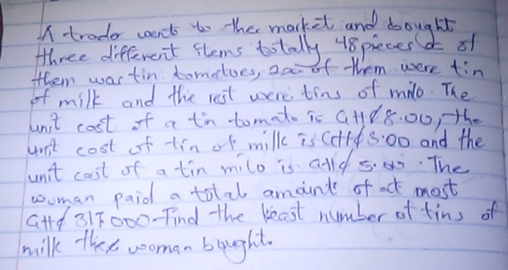 A trader went to the market and bought
three different items totally 48 pieces x of
them was tin tomatoes, 2x of them were tin
of milk and the rest were tins of milo. The
unit cost of a tin tomato is GH¢8.00, the
unit cost of tin of milk is GH¢3.00 and the
unit cost of a tin milo is GH¢ 5.00. The
woman paid a total amount of at most
GH¢ 317000 Find the least number of tins of
milk the woman bought.